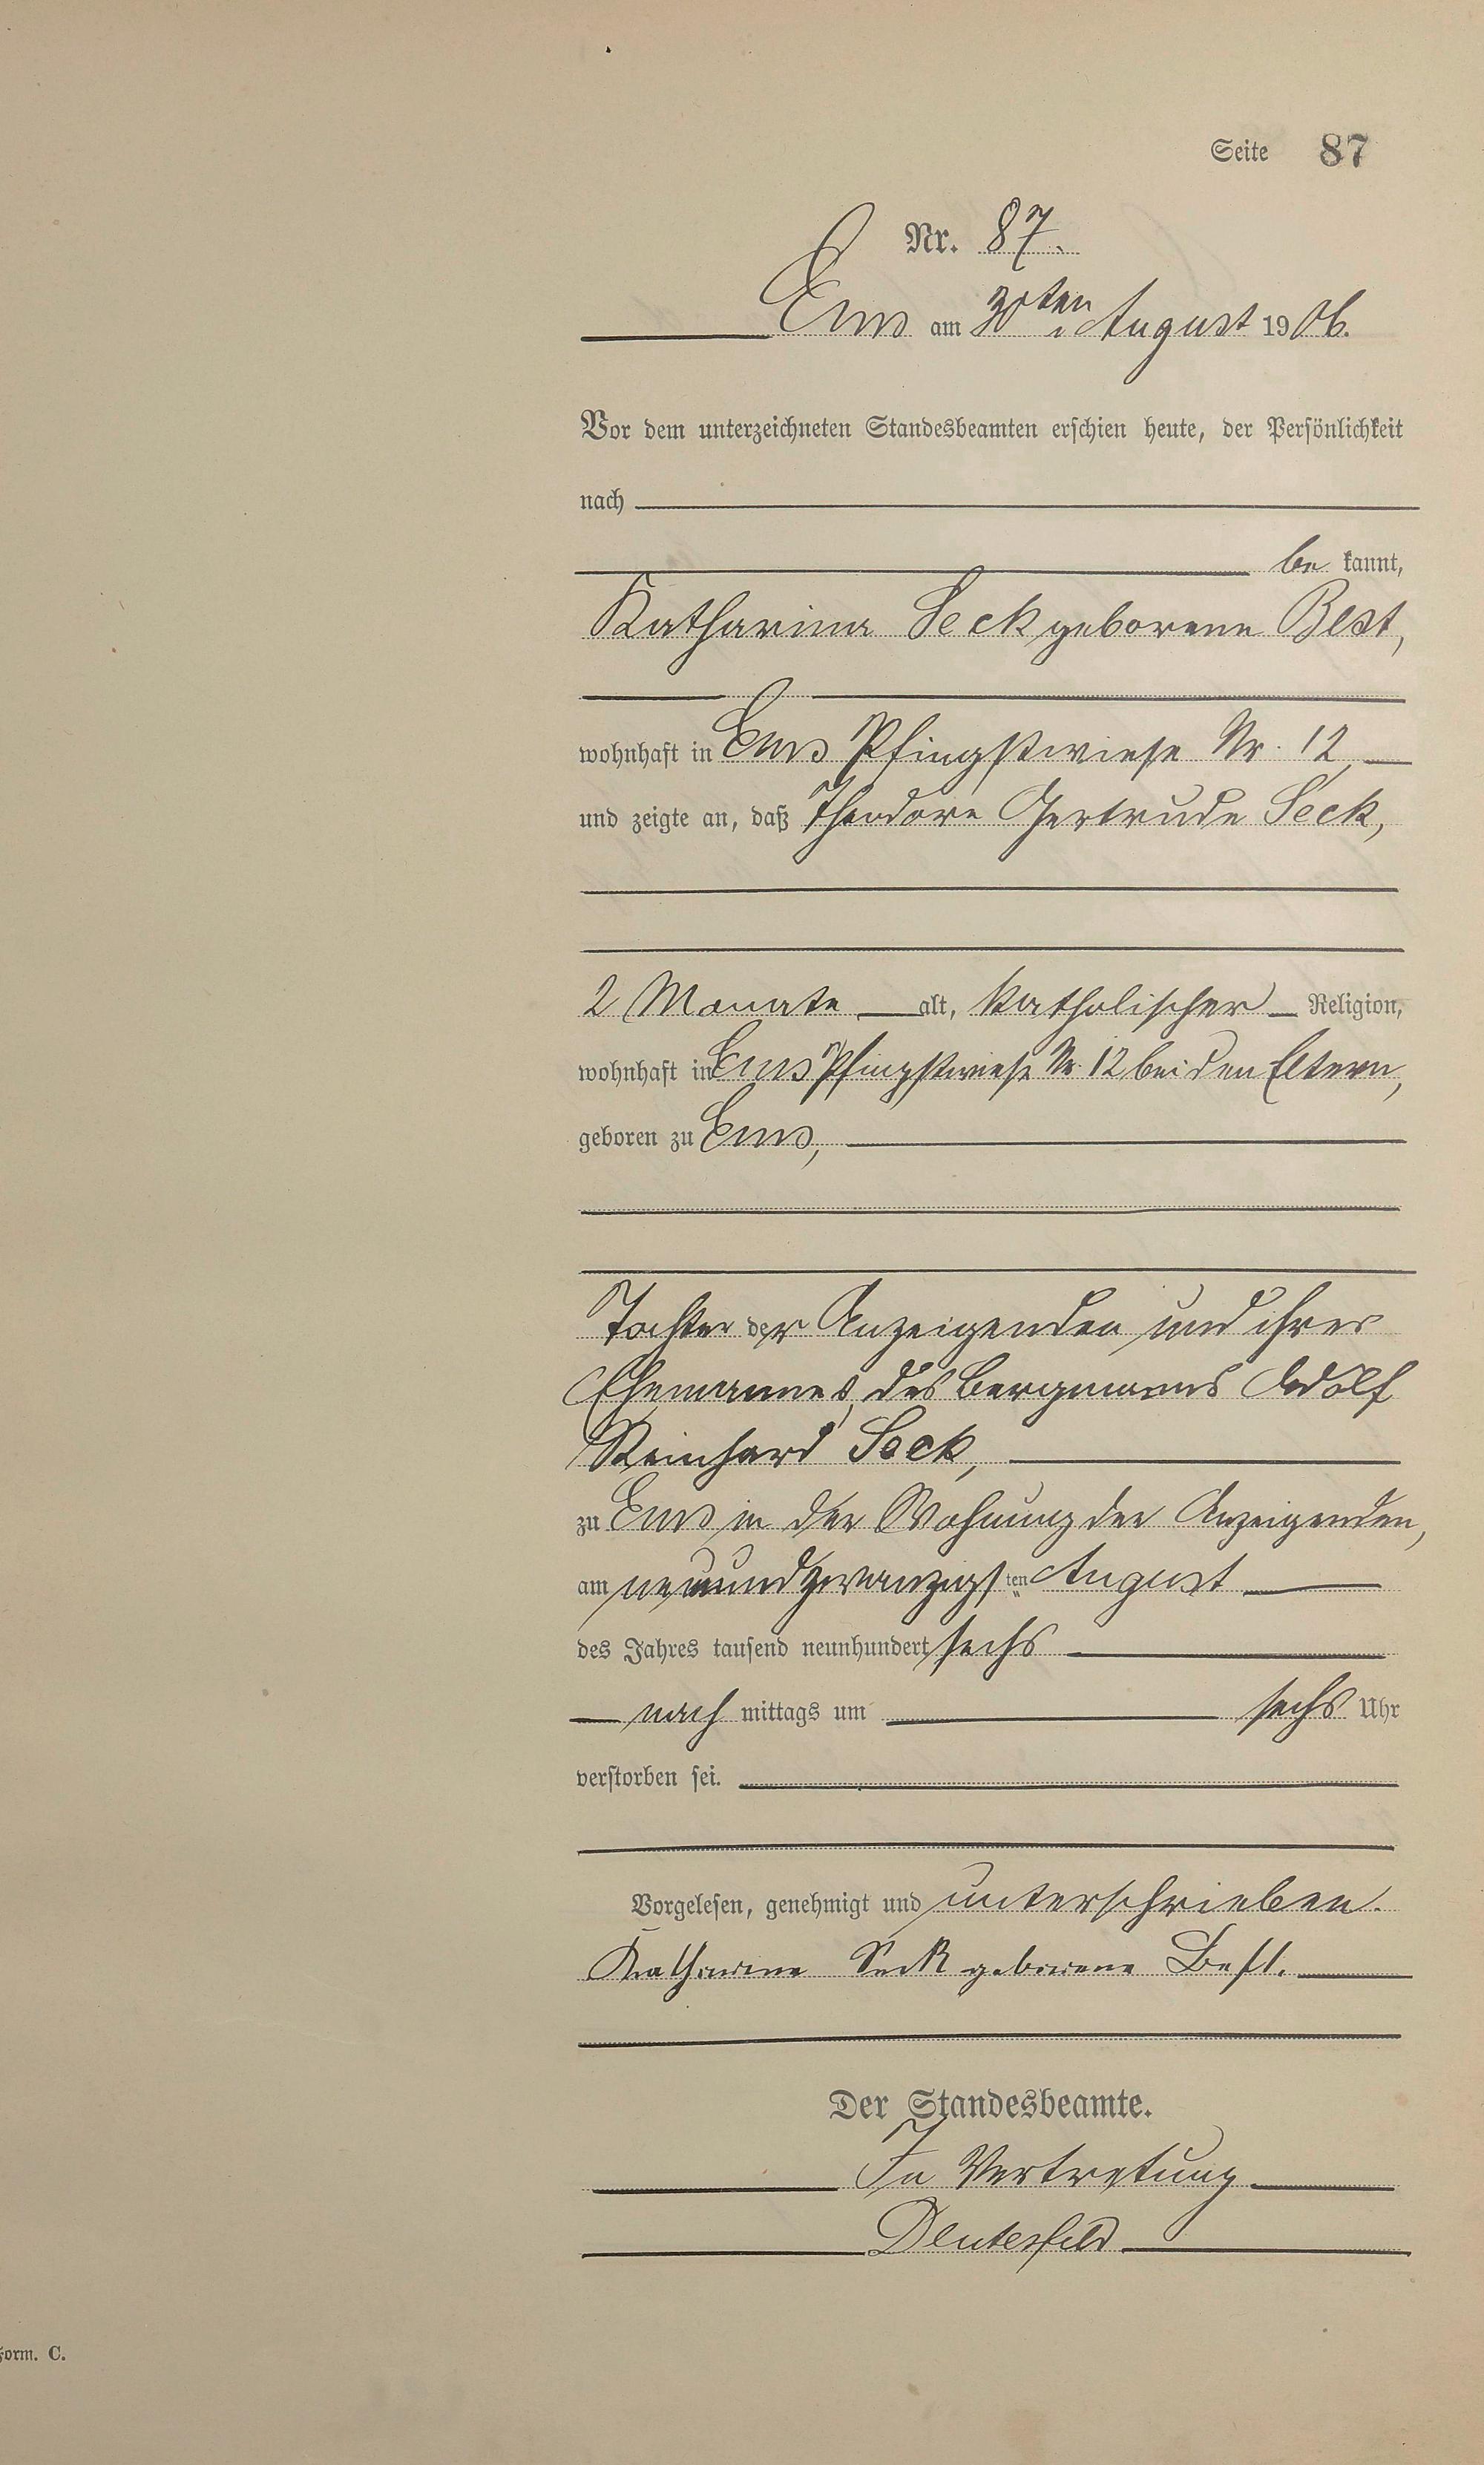 Seite 87
Nr. 87.
Ems am 30ten August 1906.
Vor dem unterzeichneten Standesbeamten erschien heute, der Persönlichkeit
nach
be kannt,
Katharina Seck geborene Best,
wohnhaft in Ems Pfingstwiese Nr. 12
und zeigte an, daß Theodore Gertrude Seck,
2 Monate alt, katholischer Religion,
wohnhaft in Ems Pfingstwiese Nr. 12 bei den Eltern,
geboren zu Ems,
Tochter der Anzeigenden und ihres
Ehemannes, des Bergmanns Adolf
Reinhard Seck,
zu Ems in der Wohnung der Anzeigenden,
am neunundzwanzigsten August
des Jahres tausend neunhundert sechs
nach mittags um sechs Uhr
verstorben sei.
Vorgelesen, genehmigt und unterschrieben.
Katharina Seck geborene Best.
Der Standesbeamte.
In Vertretung
Form. C.